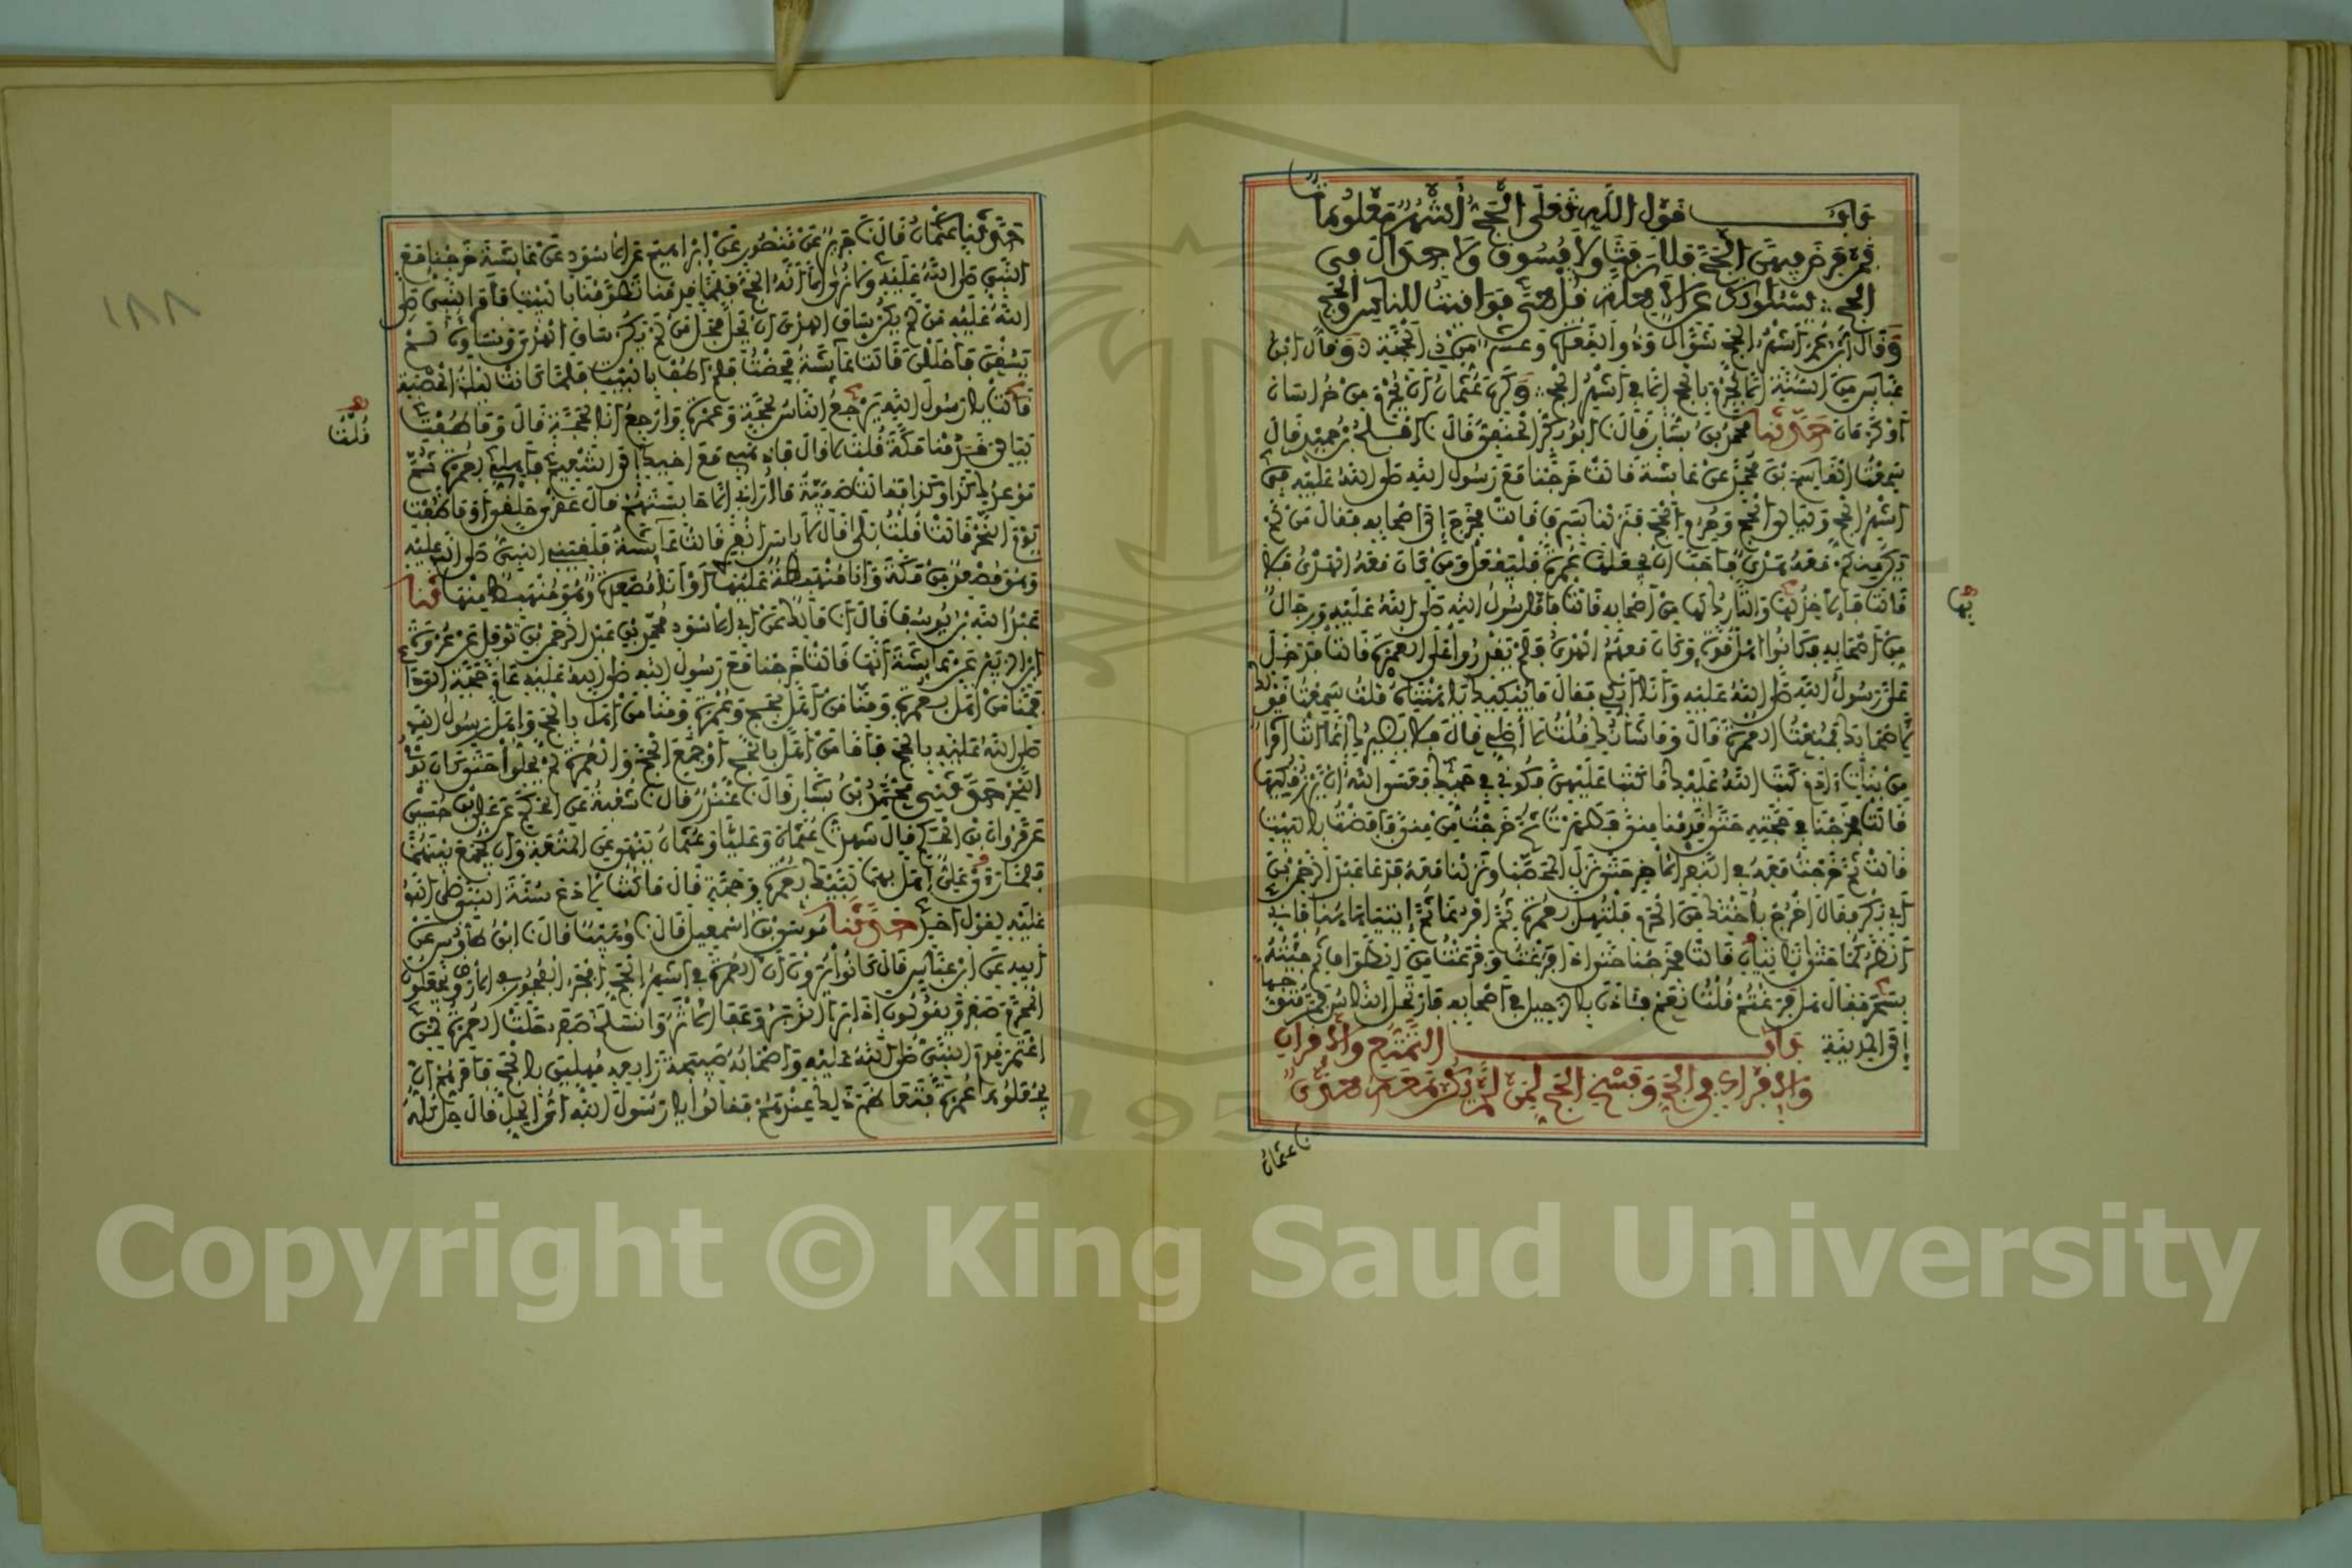 باب قول الله تعلى الحج أشهر معلومات
فمن فرض فيهن الحج فلا رفث ولا فسوق ولا جدال في
الحج يسئلونك عن الاهلة قل هي مواقيت للناس والحج
وقال ابن عمر أشهر الحج شوال وذو القعدة وعشر من ذي الحجة وقال ابن
عباس من السنة ان لا يحرم بالحج الا في أشهر الحج وكره عثمان أن يحرم من خراسان
أو كرمان حدثنا محمد بن بشار قال نا أبو بكر الحنفي قال نا افلح بن حميد قال
سمعت القاسم بن محمد عن عايشة قالت خرجنا مع رسول الله صلى الله عليه في
أشهر الحج وليالي الحج وحرم الحج فنزلنا بسرف قالت فخرج إلى اصحابه فقال من لم
يكن منكم معه هدي فاحب ان يجعلها عمرة فليفعل ومن كان معه الهدي فلا
قالت فالآخذ بها والتارك لها من أصحابه قالت فأما رسول الله صلى الله عليه ورجال
بها
من أصحابه فكانوا اهل قوة وكان معهم الهدي فلم يقدروا على العمرة قالت فدخل
علي رسول الله صلى الله عليه وأنا أبكي فقال ما يبكيك يا هنتاه قلت سمعت قولك
لأصحابك فمنعت العمرة قال وما شأنك قلت لا أصلي قال فلا يضيرك إنما أنت امرأة
من بنات ادم كتب الله عليك ما كتب عليهن فكوني في حجك فعسى الله أن يرزقكيها
قالت فخرجنا في حجته حتى قدمنا منى فطهرت ثم خرجت من منى فأفضت بالبيت
قالت ثم خرجت معه في النفر الآخر حتى نزل المحصب ونزلنا معه فدعا عبد الرحمن بن
أبي بكر فقال اخرج بأختك من الحرم فلتهل بعمرة ثم افرغا ثم إيتيا هاهنا فإني
أنظركما حتى تاتياني قالت فخرجنا حتى إذا فرغت وفرغت من الطواف ثم جئته
بسحر فقال هل فرغتم قلت نعم فأذن بالرحيل في أصحابه فارتحل الناس فمر متوجها
إلى المدينة باب التمتع والاقران
والافراد في الحج وفسخ الحج لمن لم يكن معه هدي
نا عثمان
١٨٨
حدثنا عثمان قال نا جرير عن منصور عن إبراهيم عن الأسود عن عايشة خرجنا مع
النبي صلى الله عليه ولا نرى إلا أنه الحج فلما قدمنا تطوفنا بالبيت فأمر النبي صلى
الله عليه من لم يكن ساق الهدي أن يحل فحل من لم يكن ساق الهدي ونساؤه لم
يسقن فأحللن قالت عايشة فحضت فلم أطف بالبيت فلما كانت ليلة الحصبة
قالت يا رسول الله يرجع الناس بحجة وعمرة وأرجع أنا بحجة قال وما طفت
قلت
ليالي قدمنا مكة قلت لا قال فاذهبي مع اخيك إلى التنعيم فأهلي بعمرة ثم
موعدك كذا وكذا فقالت صفية ما أراني إلا حابستهم قال عقرى حلقى أو ما طفت
يوم النحر قالت قلت بلى قال لا باس انفري قالت عايشة فلقيني النبي صلى الله عليه
وهو مصعد من مكة وأنا منهبطة عليها أو أنا مصعدة وهو منهبط منها نا
عبد الله بن يوسف قال نا مالك عن أبي الأسود محمد بن عبد الرحمن بن نوفل عن عروة
ابن الزبير عن عايشة أنها قالت خرجنا مع رسول الله صلى الله عليه عام حجة الوداع
فمنا من أهل بعمرة ومنا من أهل بحج وعمرة ومنا من أهل بالحج وأهل رسول الله
صلى الله عليه بالحج فأما من أهل بالحج أو جمع الحج والعمرة لم يحلوا حتى كان يوم
النحر حدثني محمد بن بشار قال نا غندر قال نا شعبة عن الحكم عن علي بن حسين
عن مروان بن الحكم قال شهدت عثمان وعليا وعثمان ينهى عن المتعة وأن يجمع بينهما
فلما رأى علي أهل بهما لبيك بعمرة وحجة قال ما كنت لأدع سنة النبي صلى الله
عليه لقول أحد حدثنا موسى بن اسمعيل قال نا وهيب قال نا ابن طاوس عن
أبيه عن ابن عباس قال كانوا يرون أن العمرة في أشهر الحج من أفجر الفجور في الأرض ويجعلون
المحرم صفر ويقولون إذا برا الدبر وعفا الأثر وانسلخ صفر حلت العمرة لمن
اعتمر قدم النبي صلى الله عليه وأصحابه صبيحة رابعة مهلين بالحج فأمرهم أن
يجعلوها عمرة فتعاظم ذلك عندهم فقالوا يا رسول الله أي الحل قال حل كله
Copyright © King Saud University
1957